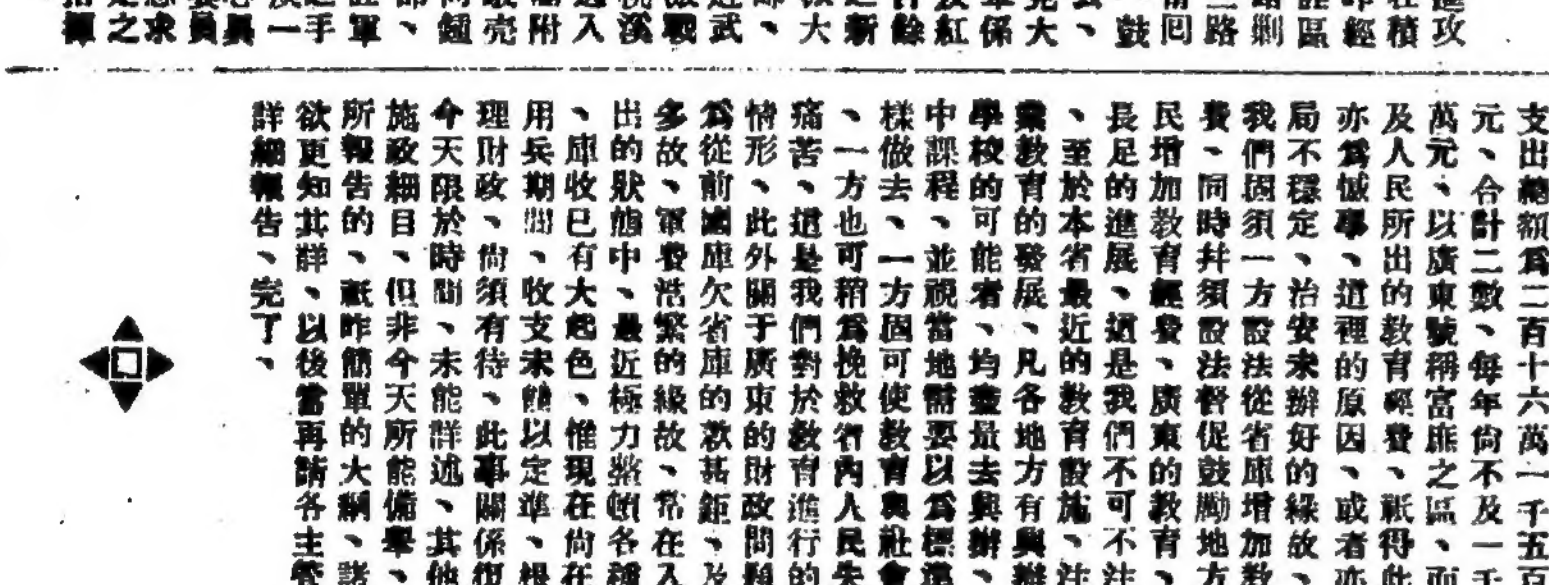 進攻
在積
昨經
匪區
路剿
前囘
鼓
、
大
係
紅
餘
新
大
、
武
戰
溪
入
附
売
鐘
、
軍
手
一
員
求
之
揮
支出總額爲二百十六萬一千五百
元、合計二數、每年尙不及一千
萬元、以廣東號稱富庶之區、而
及人民所出的教育經費、祇得此
亦爲憾事、這裡的原因、或者亦
局不穩定、治安未辦好的緣故、
我們固須一方設法從省庫增加教
費、同時幷須設法督促鼓勵地方
民增加教育經費、廣東的教育、
長足的進展、這是我們不可不注
、至於本省最近的教育設施、注
業教育的發展、凡各地方有興辦
學校的可能者、均盡量去興辦、
中課程、並視當地需要以爲標準
樣做去、一方固可使教育與社會
、一方也可稍爲挽救省內人民失
痛苦、這是我們對於教育進行的
情形、此外關于廣東的財政問題
爲從前國庫欠省庫的款甚鉅、及
多故、軍費浩繁的緣故、常在入
出的狀態中、最近極力整頓各種
、庫收已有大起色、惟現在尙在
用兵期間、收支未能以定準、根
理財政、尙須有待、此事關係復
今天限於時間、未能詳述、其他
施政細目、但非今天所能備舉、
所報告的、祇昨簡單的大綱、諸
欲更知其詳、以後當再請各主管
詳細報告、完了、